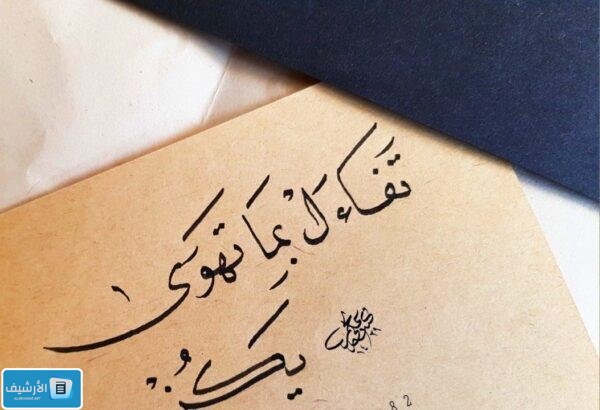 تَفاءَلْ بِمَا تهوَى
يكُن
8 2
الأرشيف